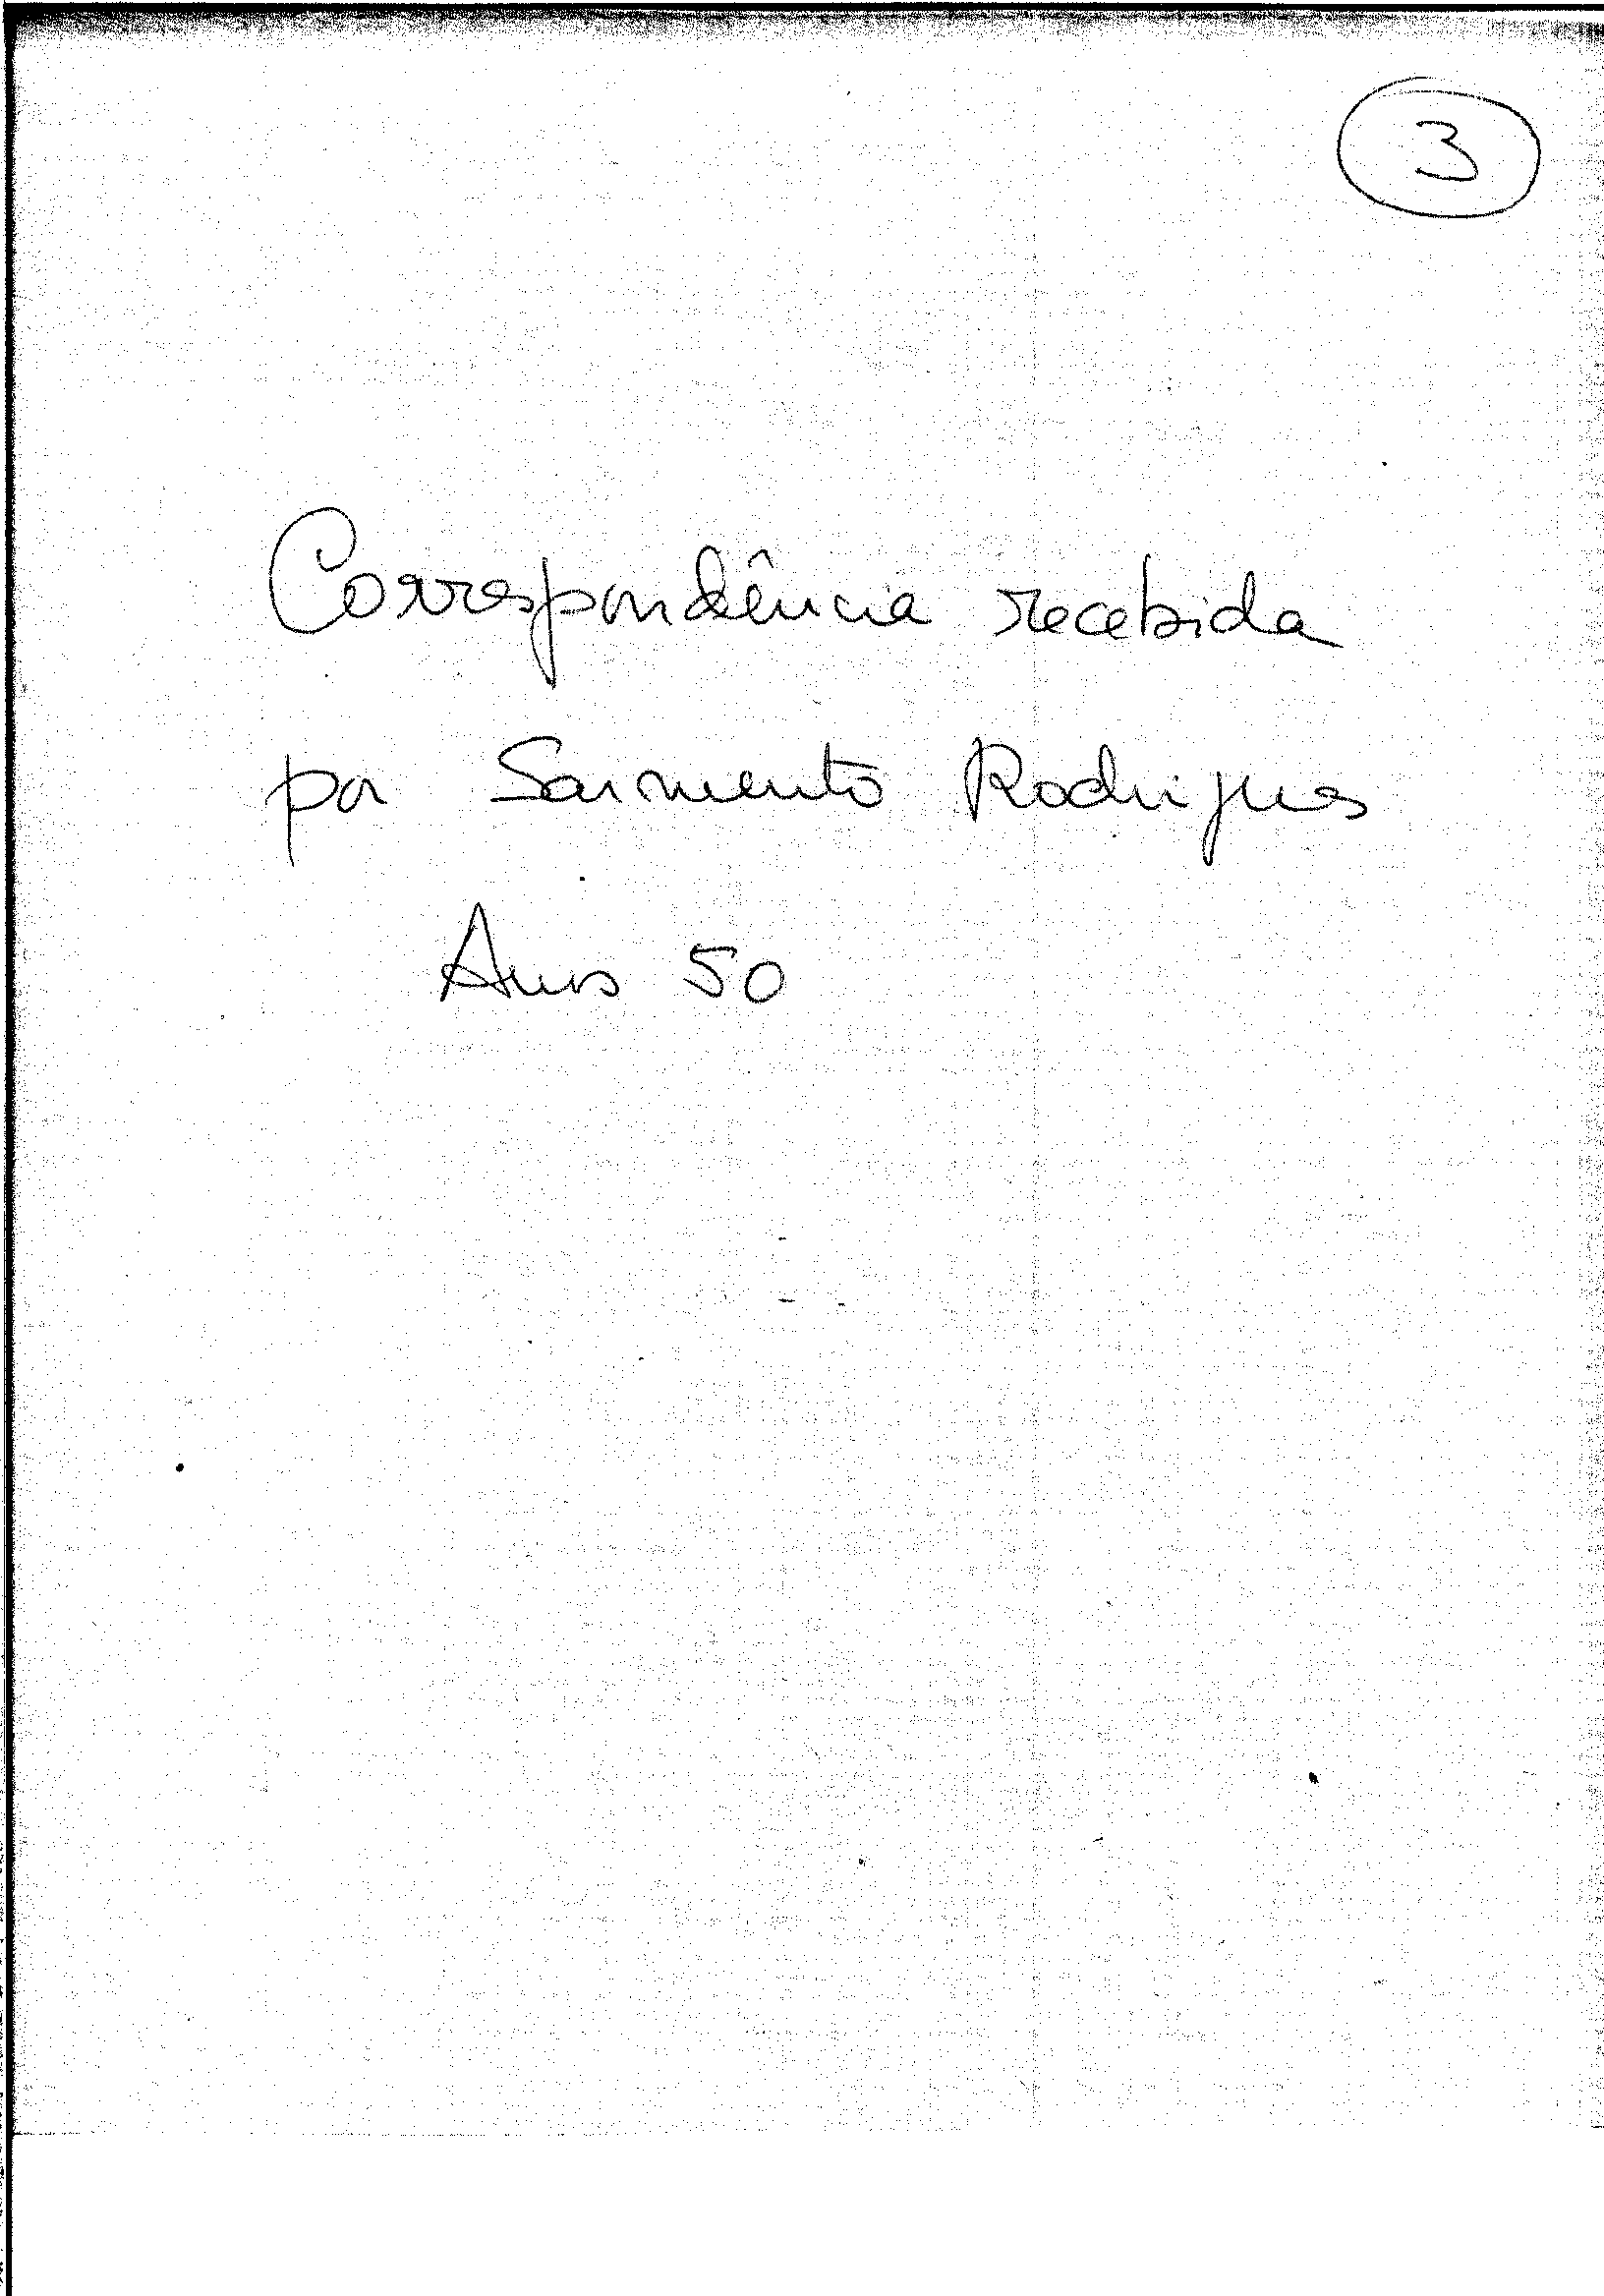 3
Correspondência recebida
por Sarmento Rodrigues
Anos 50